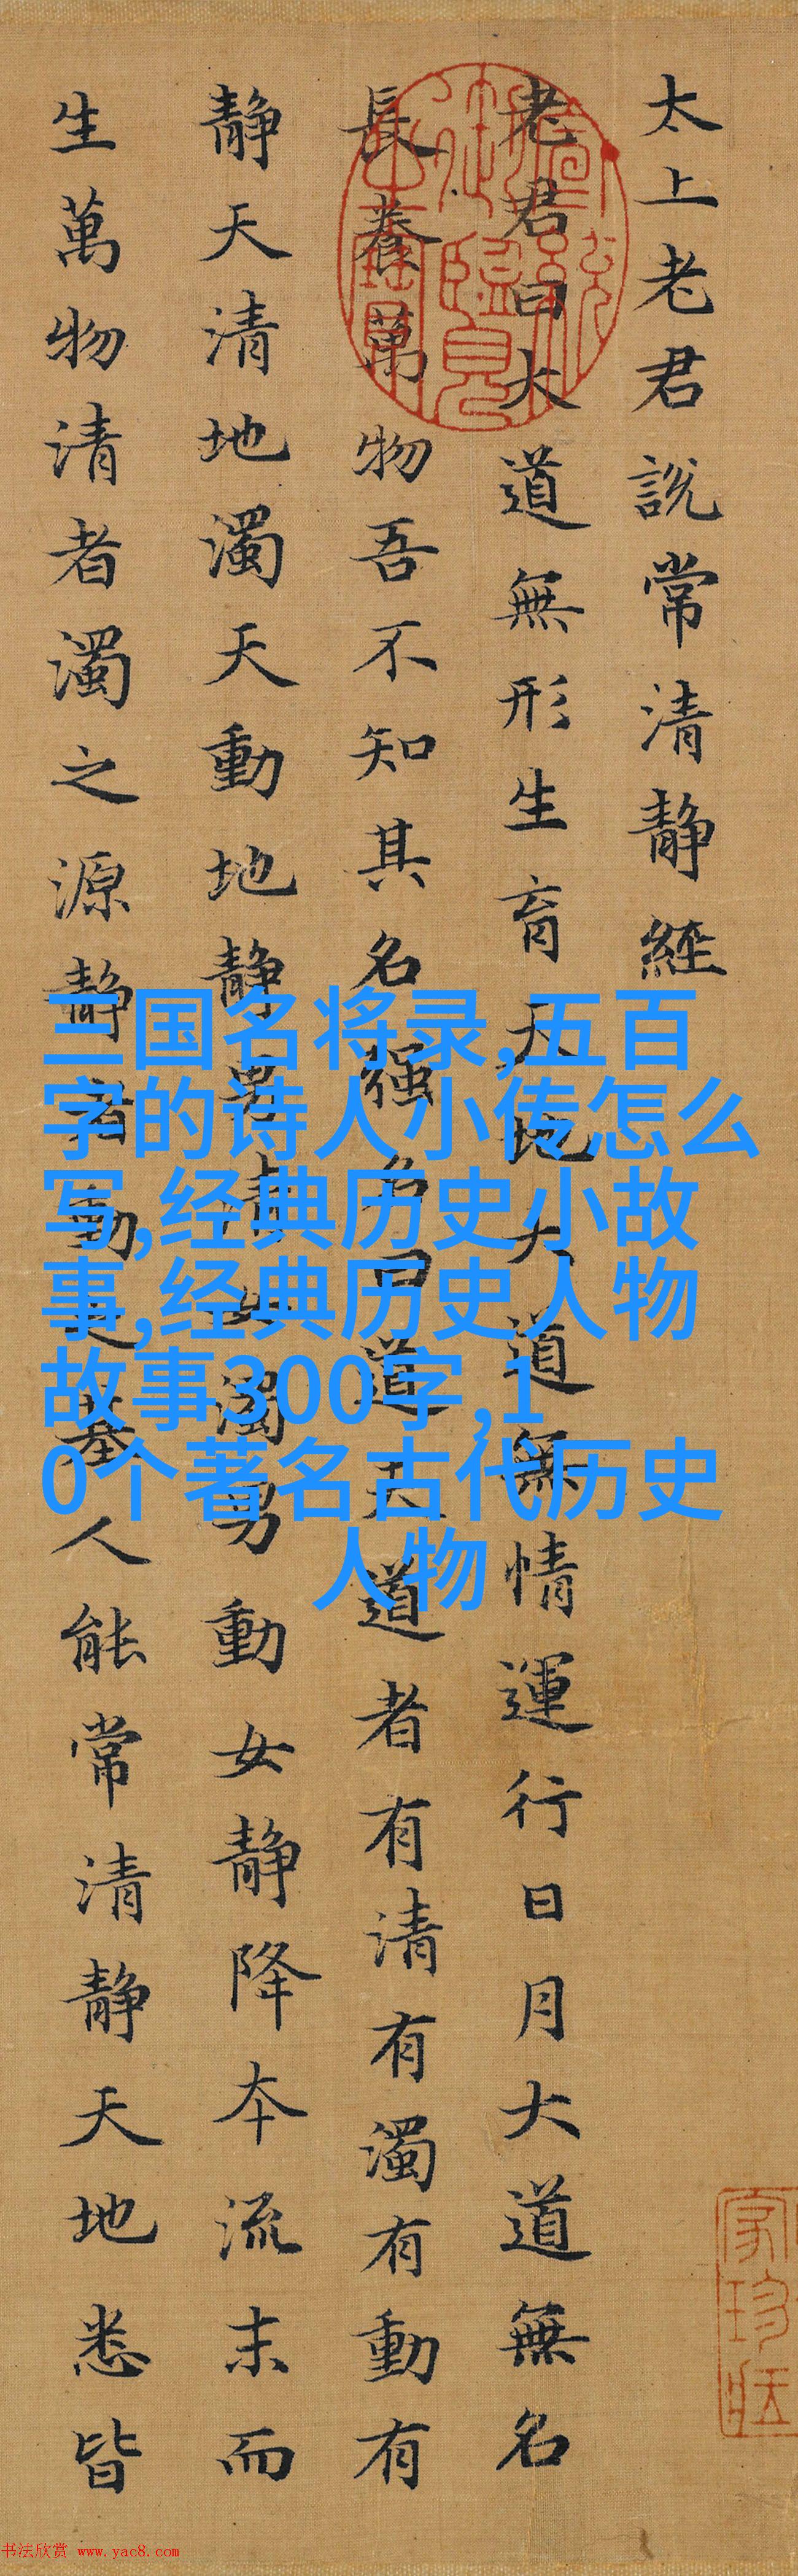 太上老君說常清靜經
老君曰大道無形生育天地大道無情運行日月大道無名
長養萬物吾不知其名强名曰道夫道者有清有濁有動有
靜天清地濁天動地靜男清女濁男動女靜降夲流末而
生萬物清者濁之源靜者動之基人能常清靜天地悉皆
三国名将录,五百
字的诗人小传怎么
写,经典历史小故
事,经典历史人物
故事300字,1
0个著名古代历史
人物
書法欣赏 www.yac8.com